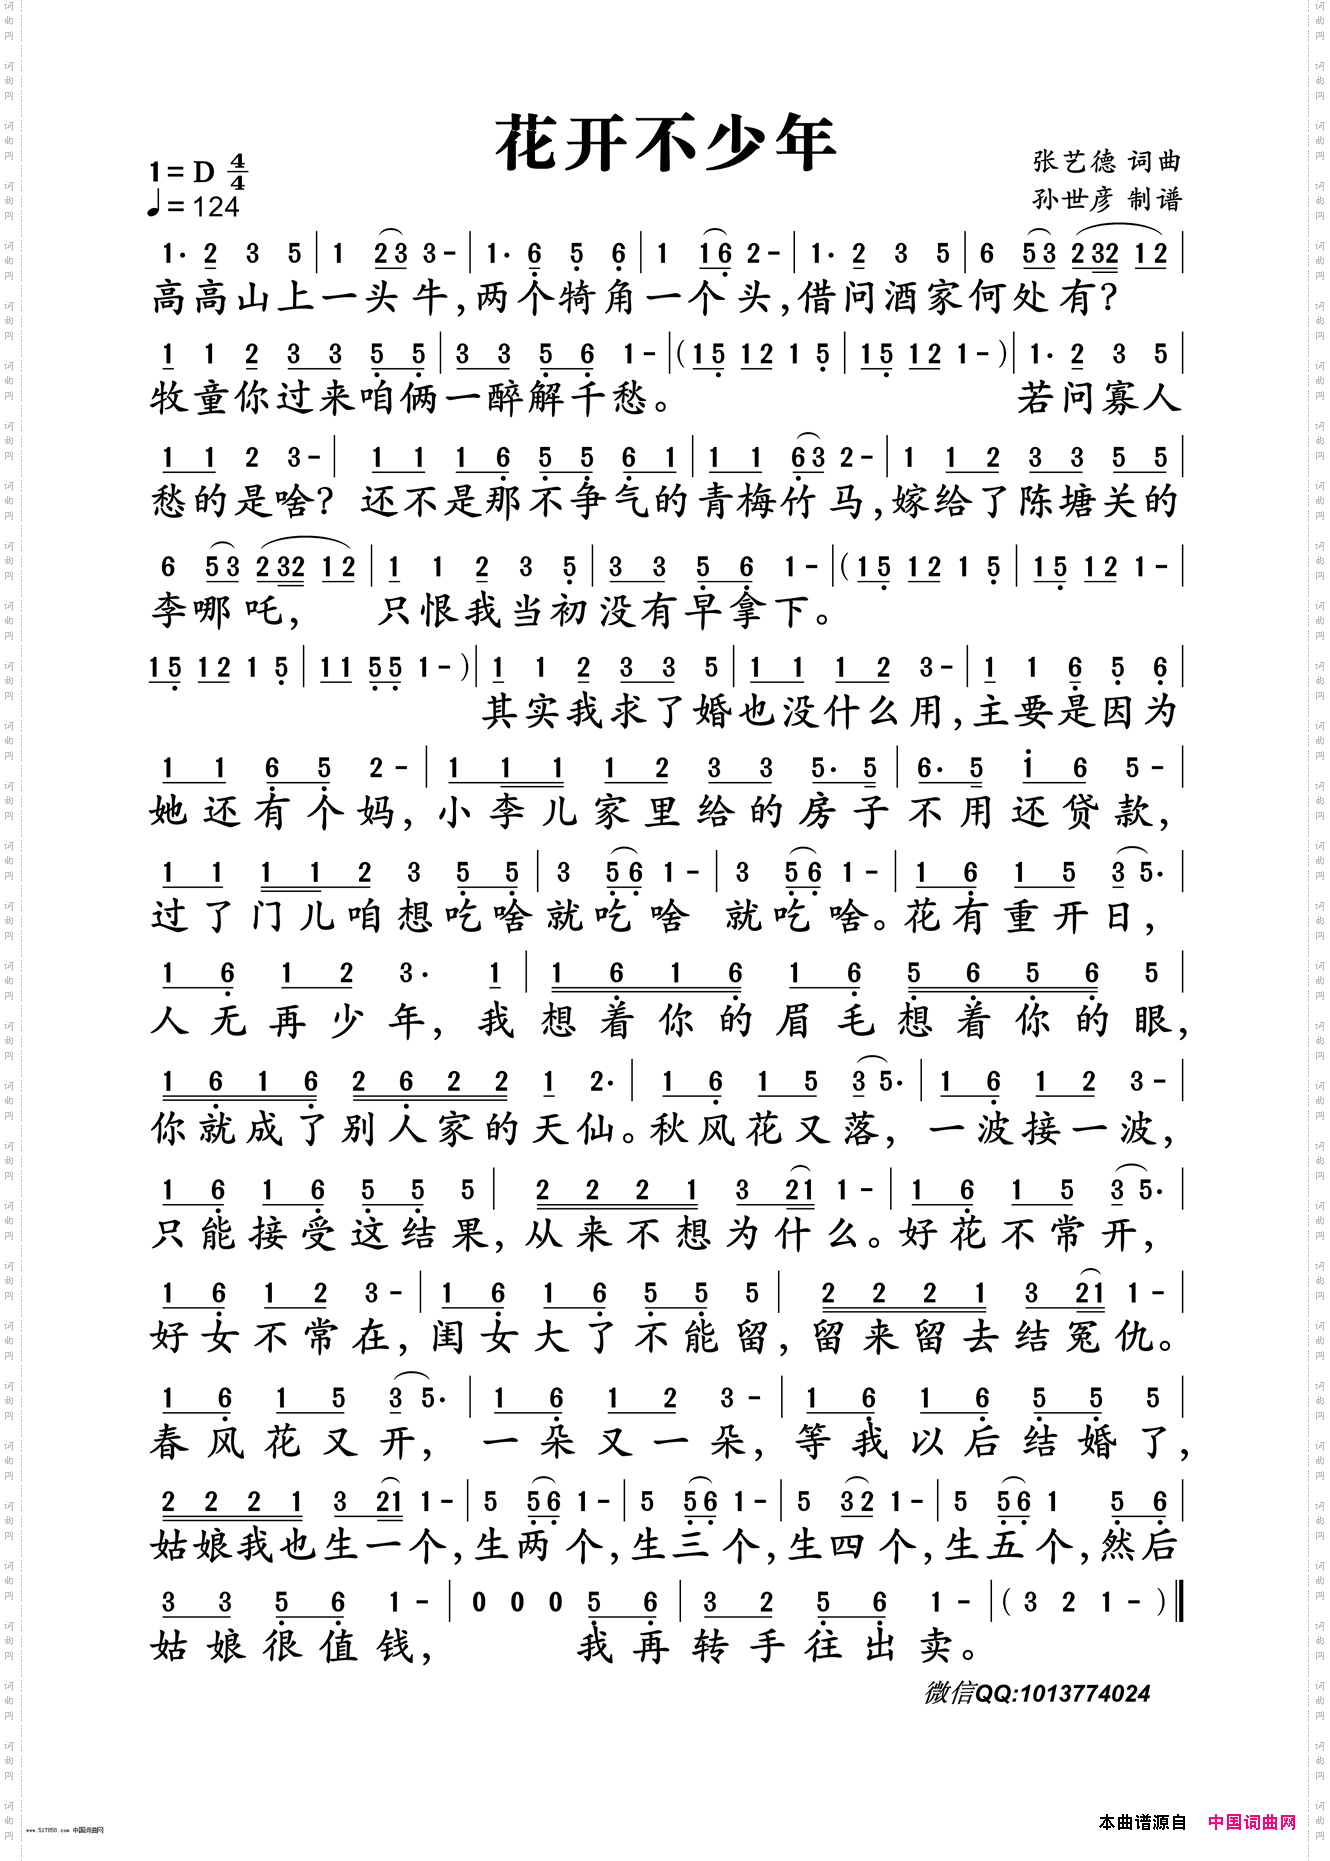 花开不少年
1=D 4/4
♩=124
张艺德 词曲
孙世彦 制谱
1· 2 3 5 | 1 23 3 - | 1· 6 5 6 | 1 16 2 - | 1· 2 3 5 | 6 53 232 12 |
高高山上一头牛,两个犄角一个头,借问酒家何处有?
1 1 2 3 3 5 5 | 3 3 5 6 1 - | (15 12 1 5 | 15 12 1 - ) | 1· 2 3 5 |
牧童你过来咱俩一醉解千愁。 若问寡人
1 1 2 3 - | 1 1 1 6 5 5 6 1 | 1 1 63 2 - | 1 1 2 3 3 5 5 |
愁的是啥? 还不是那不争气的青梅竹马,嫁给了陈塘关的
6 53 232 12 | 1 1 2 3 5 | 3 3 5 6 1 - | (15 12 1 5 | 15 12 1 - |
李哪吒, 只恨我当初没有早拿下。
15 12 1 5 | 11 55 1 - ) | 1 1 2 3 3 5 | 1 1 1 2 3 - | 1 1 6 5 6 |
其实我求了婚也没什么用,主要是因为
1 1 6 5 2 - | 1 1 1 1 2 3 3 5· 5 | 6· 5 1 6 5 - |
她还有个妈,小李儿家里给的房子不用还贷款,
1 1 1 1 2 3 5 5 | 3 56 1 - | 3 56 1 - | 1 6 1 5 3 5· |
过了门儿咱想吃啥就吃啥 就吃啥。花有重开日,
1 6 1 2 3· 1 | 1 6 1 6 1 6 5 6 5 6 5 |
人无再少年,我想着你的眉毛想着你的眼,
1 6 1 6 2 6 2 2 1 2· | 1 6 1 5 3 5· | 1 6 1 2 3 - |
你就成了别人家的天仙。秋风花又落,一波接一波,
1 6 1 6 5 5 5 | 2 2 2 1 3 21 1 - | 1 6 1 5 3 5· |
只能接受这结果,从来不想为什么。好花不常开,
1 6 1 2 3 - | 1 6 1 6 5 5 5 | 2 2 2 1 3 21 1 - |
好女不常在,闺女大了不能留,留来留去结冤仇。
1 6 1 5 3 5· | 1 6 1 2 3 - | 1 6 1 6 5 5 5 |
春风花又开,一朵又一朵,等我以后结婚了,
2 2 2 1 3 21 1 - | 5 56 1 - | 5 56 1 - | 5 32 1 - | 5 56 1 5 6 |
姑娘我也生一个,生两个,生三个,生四个,生五个,然后
3 3 5 6 1 - | 0 0 0 5 6 | 3 2 5 6 1 - | ( 3 2 1 - )
姑娘很值钱, 我再转手往出卖。
微信QQ:1013774024
本曲谱源自 中国词曲网
www.517050.com 中国词曲网